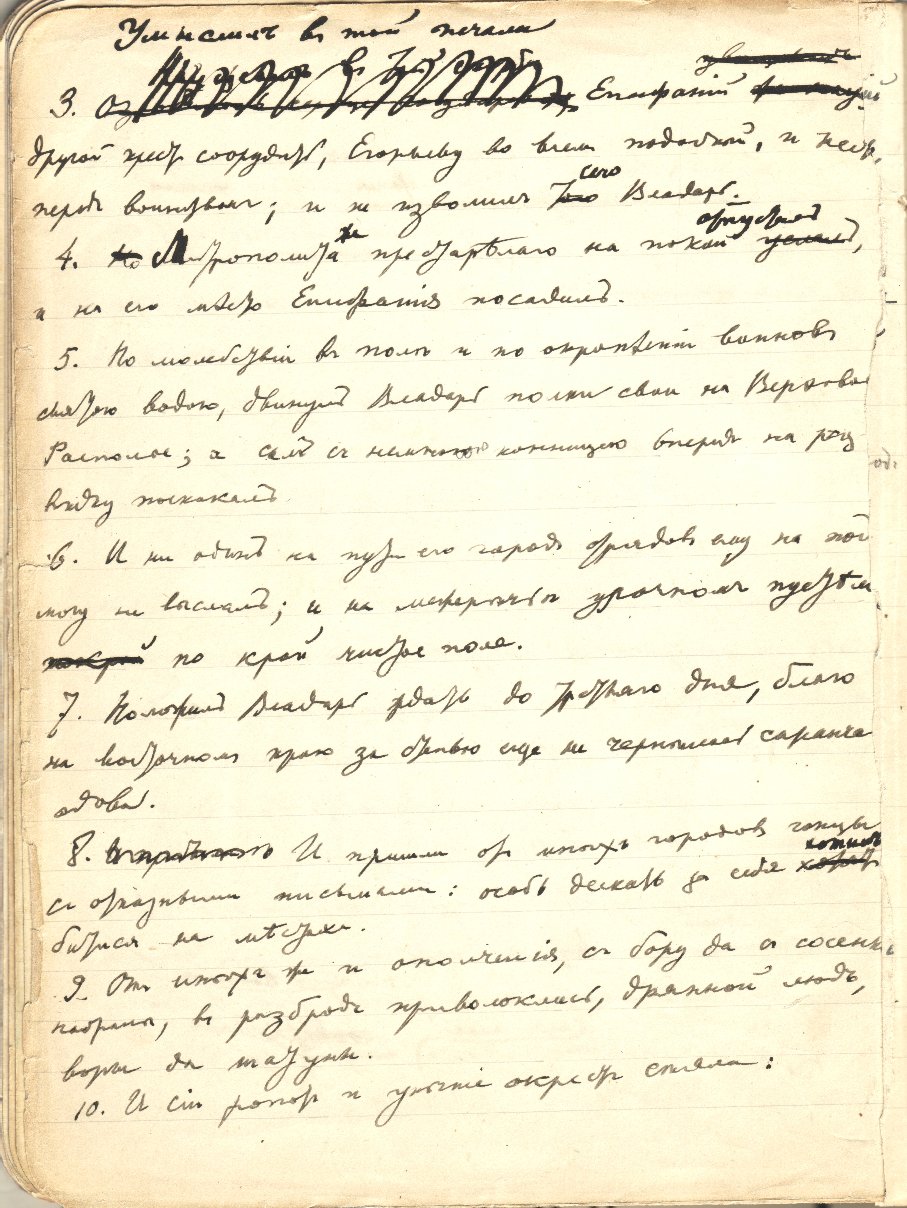 Умыслилъ въ той печали
3. Епифаній
другой крестъ соорудить, Егорьеву во всемъ подобный, и несть
передъ воинствомъ; и не изволилъ сего Владарь.
4. Митрополита же престарѣлаго на покой отпустилъ,
и на его мѣсто Епифанія посадилъ.
5. По молебствіи въ полѣ и по окропленіи воиновъ
святою водою, двинулъ Владарь полки свои на Верховое
Располье; а самъ съ немногою конницею впередъ на раз
вѣдку поскакалъ
6. И ни одинъ на пути его городъ отрядовъ ему на по
могу не выслалъ; и на урочномъ пустымъ
по край чистое поле.
7. Положилъ Владарь ждать до третьяго дня, благо
на восточномъ краю за степью еще не чернѣлась саранча
ова.
8. И пришли отъ иныхъ городовъ гонцы
съ отказными письмами: особь дескать за себя хотимъ
битися на мѣстахъ.
9. Отъ иныхъ же и ополченія, съ бору да съ сосенки
набраны, въ разбродъ приволоклись, дрянной людъ,
воры да шатуны.
10. И сіи ропотъ и уныніе окрестъ сѣяли: